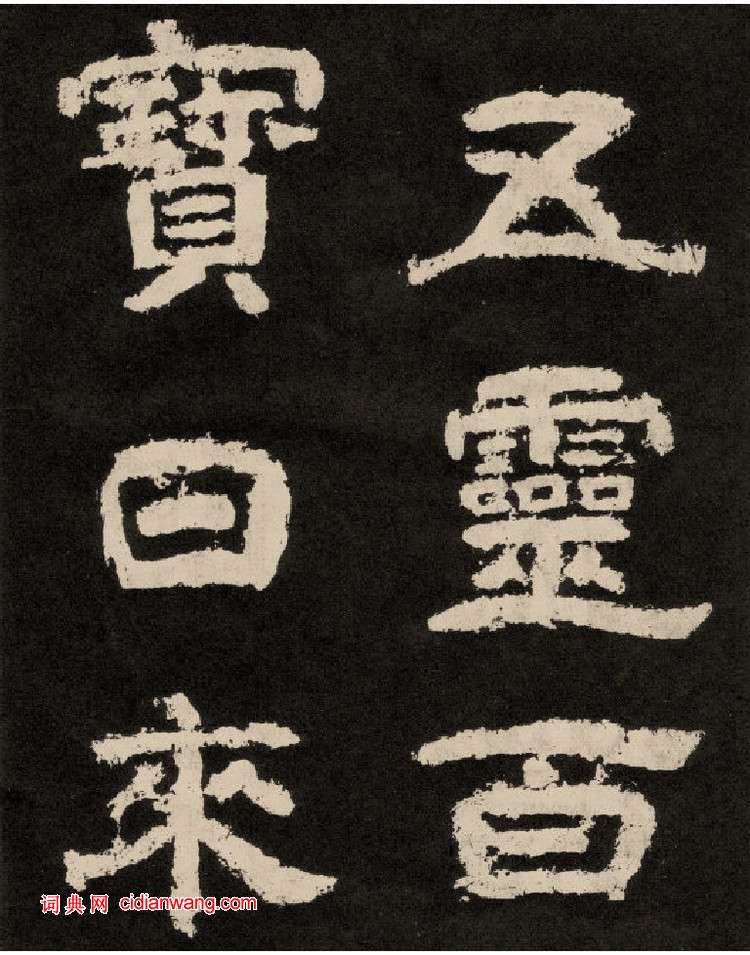 五靈百
寶日來
词典网 cidianwang.com